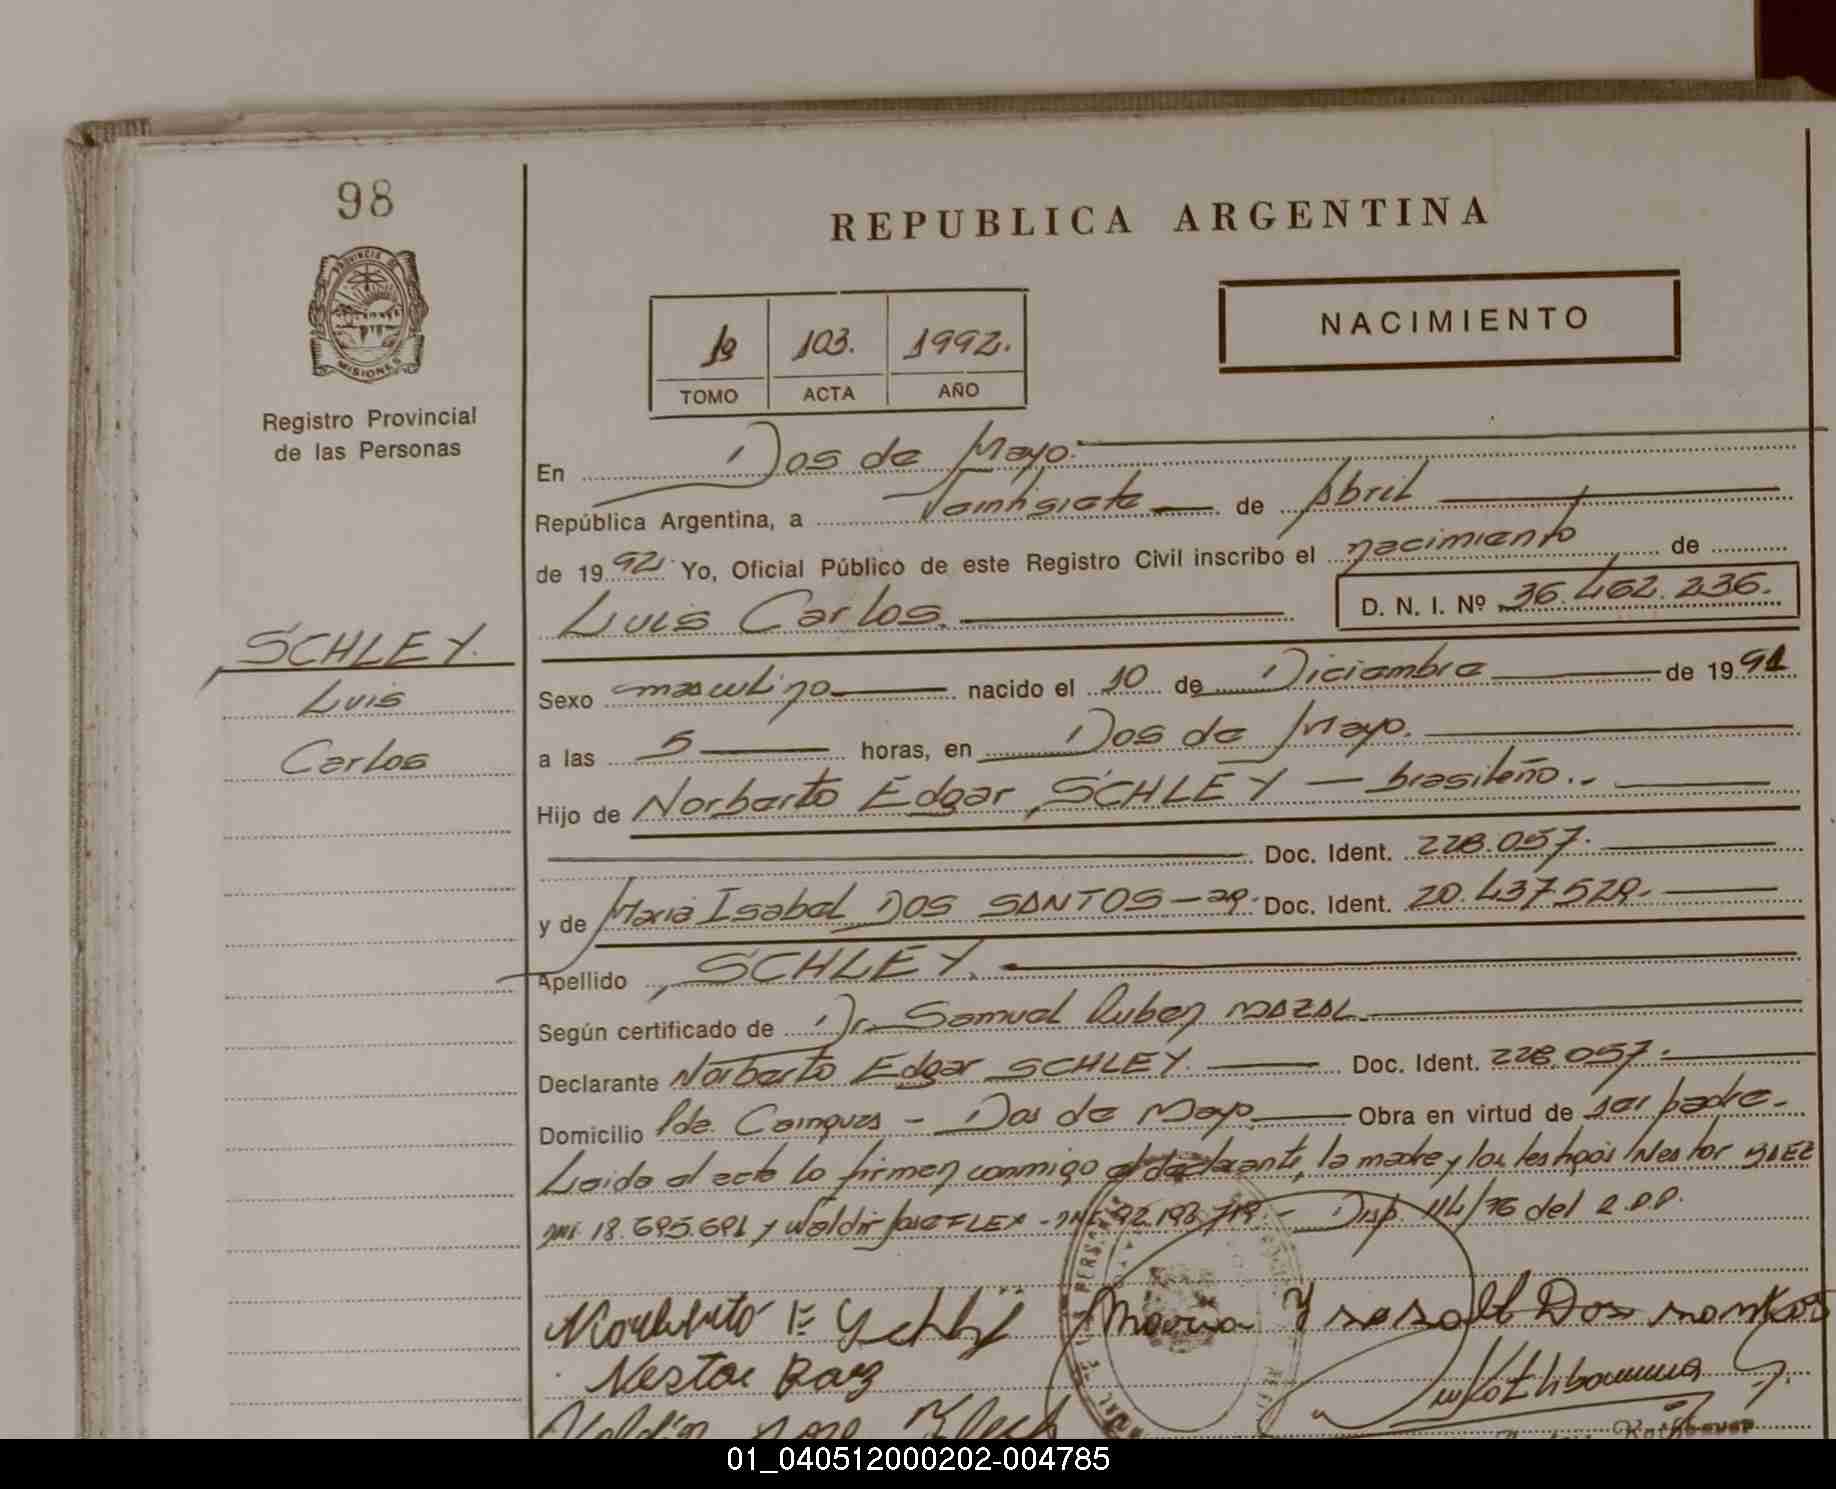 98
PROVINCIA DE
MISIONES
Registro Provincial
de las Personas
SCHLEY.
Luis
Carlos
REPUBLICA ARGENTINA
NACIMIENTO
1º 103. 1992.
TOMO ACTA AÑO
En Dos de Mayo.
República Argentina, a Veintisiete de Abril
de 1992. Yo, Oficial Público de este Registro Civil inscribo el nacimiento de
Luis Carlos. D. N. I. Nº 36.462.236.
Sexo masculino nacido el 10 de Diciembre de 1991
a las 5 horas, en Dos de Mayo.
Hijo de Norberto Edgar SCHLEY — brasileño.-
Doc. Ident. 228.057.
y de Maria Isabel DOS SANTOS - ar. Doc. Ident. 20.437.529.
Apellido SCHLEY.
Según certificado de Dr. Samuel Ruben MAZAL
Declarante Norberto Edgar SCHLEY. Doc. Ident. 228.057.
Domicilio Pde. Cainguas - Dos de Mayo Obra en virtud de ser padre-
Leida el acta lo firman conmigo el declarante, la madre y los testigos Nestor BAEZ
DNI. 18.695.691 y Waldir Jose FLEX - DNI 92.193.719.- Disp. 114/76 del R.P.P.
Norberto E Schley Maria Ysabel Dos Santos
Nestor Baez
01_040512000202-004785